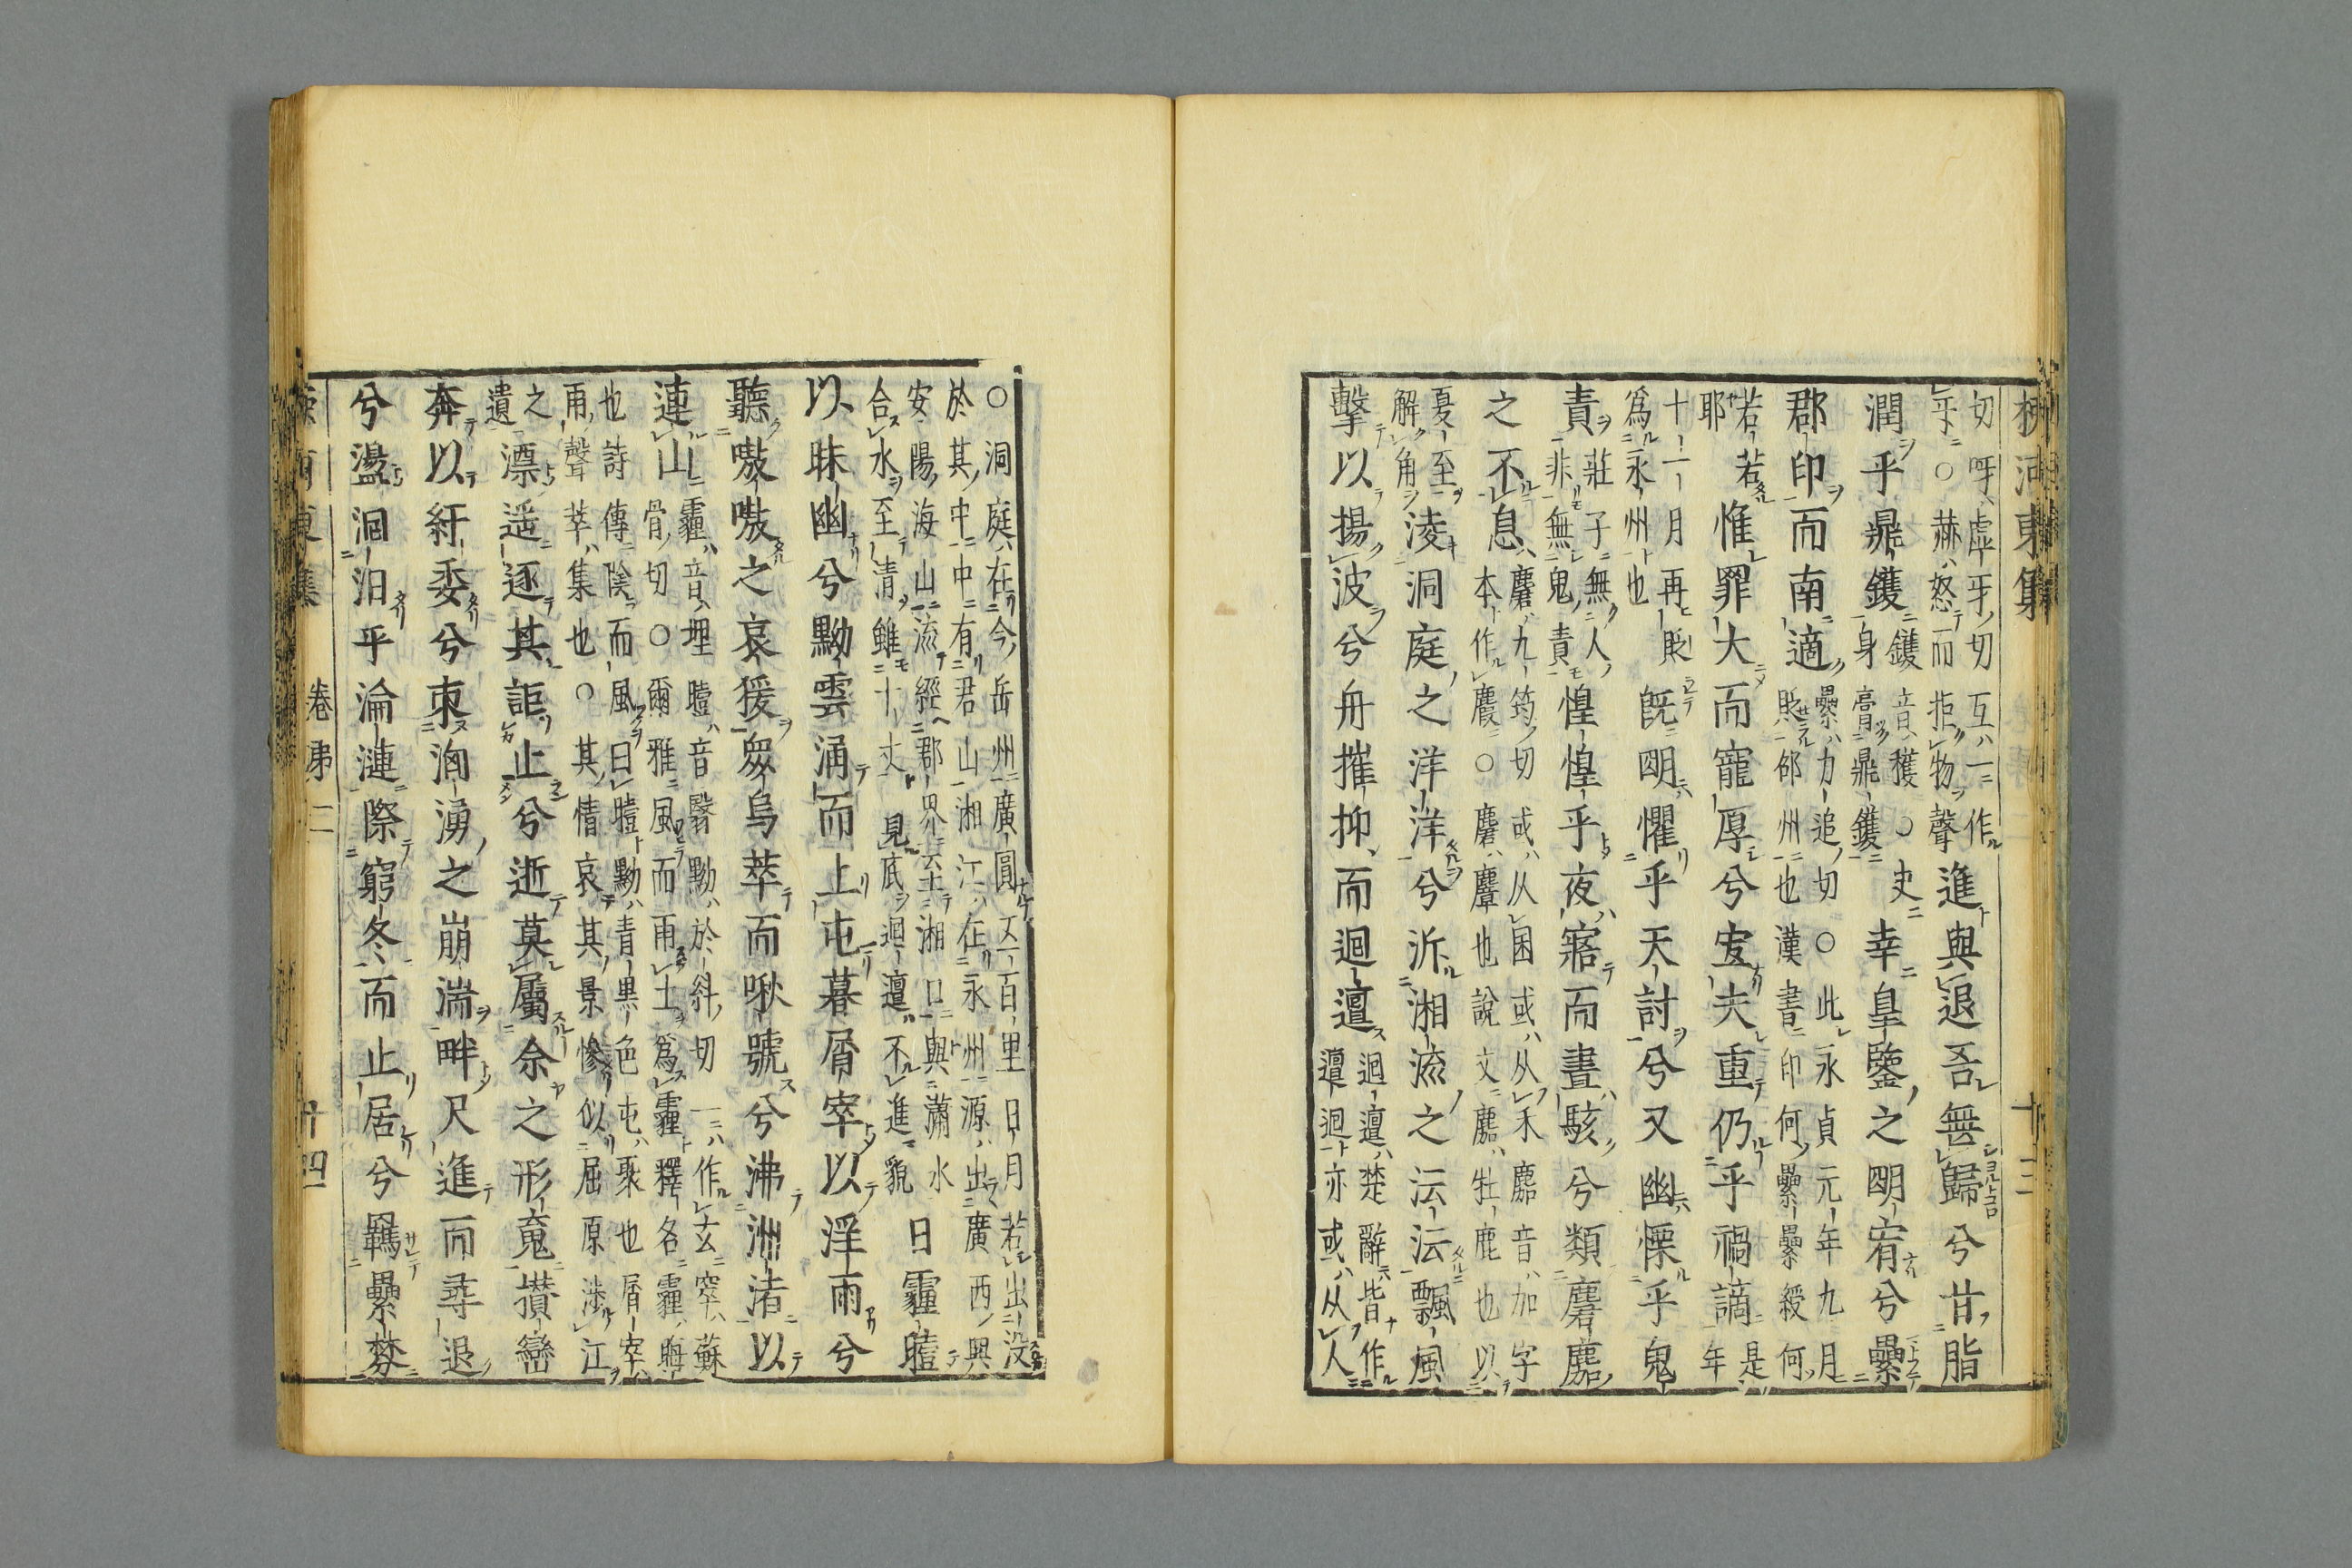 柳河東集 十三
切呼虛牙切互一作
乎○赫怒而拒物聲
進與退吾無歸兮甘脂
潤乎鼎鑊
鑊音穫○史
身膏鼎鑊
幸皇鑒之明宥兮纍
郡印而南適
纍力追切○此永貞元年九月
貶邵州也漢書印何纍纍綬何
若若
耶
惟罪大而寵厚兮宜夫重仍乎禍謫
是
年
十一月再貶
爲永州也
既明懼乎天討兮又幽慄乎鬼
責
莊子無人
非無鬼責
惶惶乎夜寤而晝駭兮類麏麚
之不息
麏九筠切或从囷或从禾麚音加字
本作麇○麏麞也說文麚牡鹿也以
夏至
解角
淩洞庭之洋洋兮泝湘流之沄沄飄風
擊以揚波兮舟摧抑而迴邅
迴邅楚辭皆作
邅迴亦或从人
○洞庭在今岳州廣圓五百里日月若出没
於其中中有君山湘江在永州源出廣西興
安陽海山流經郡界至湘口與瀟水
合水至清雖十丈見底迴邅不進貌
日霾曀
以昧幽兮黝雲涌而上屯暮屑窣以淫雨兮
聽嗷嗷之哀猨衆鳥萃而啾號兮沸洲渚以
連山
霾音埋曀音翳黝於糾切一作玄窣蘇
骨切○爾雅風而雨土爲霾釋名霾晦
也詩傳陰而風曰曀黝青黑色屯聚也屑窣
雨聲萃集也○其情哀其景慘似屈原涉江
之
遺
漂遥逐其詎止兮逝莫屬余之形魂攢巒
奔以紆委兮束洶湧之崩湍畔尺進而尋退
兮盪洄汨乎淪漣際窮冬而止居兮羈纍棼
河東集 卷第二 十四